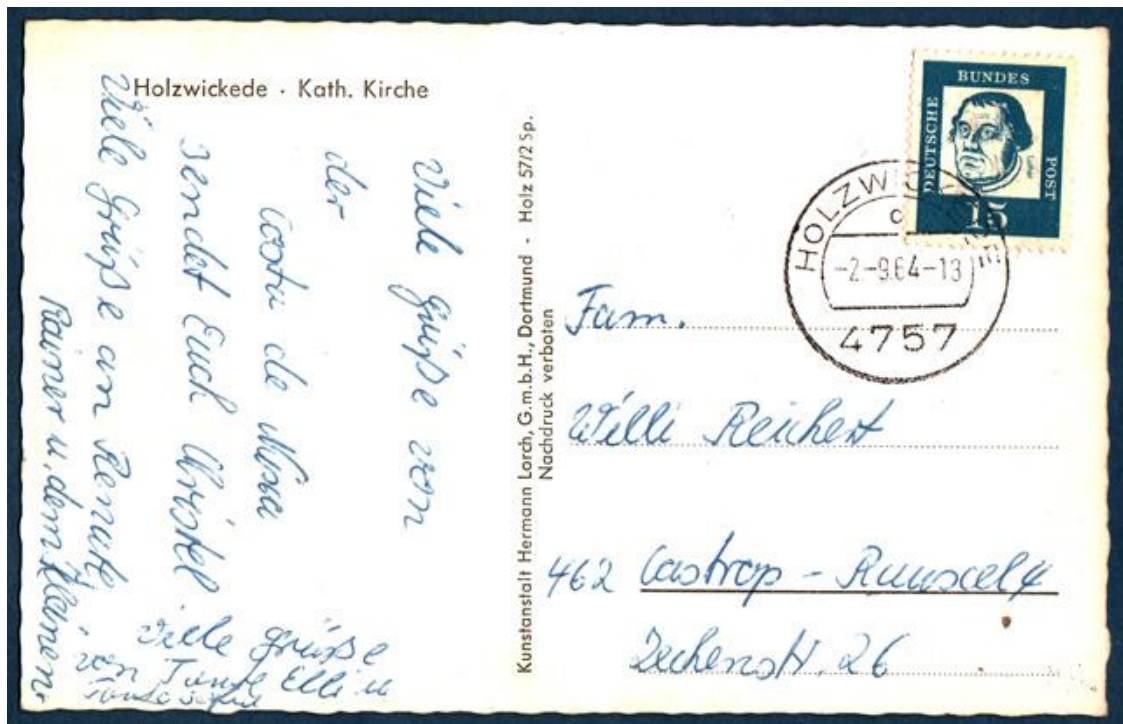 Holzwickede · Kath. Kirche
Viele Grüße von
der
Costa de Nova
sendet Euch Christel
Viele Grüße an Renate
Rainer u. dem Kleinen.
Viele Grüße
von Tante Elli u
Tante
Kunstanstalt Hermann Lorch, G.m.b.H., Dortmund - Holz 57/2 Sp.
Nachdruck verboten
DEUTSCHE
BUNDES
POST
Luther
15
HOLZWICKEDE
-2.-9.64-13
4757
Fam.
Willi Reichert
462 Castrop-Rauxel 4
Zechenstr. 26